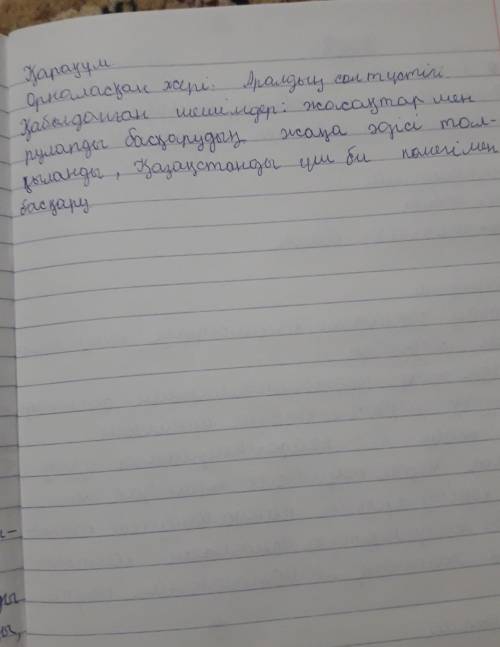 Қарақұм
Орналасқан жері: Аралдың солтүстігі
Қабылданған шешімдер: жасақтар мен
руларды басқарудың жаңа әдісі тал-
қыланды, Қазақстанды үш би көмегімен
басқару